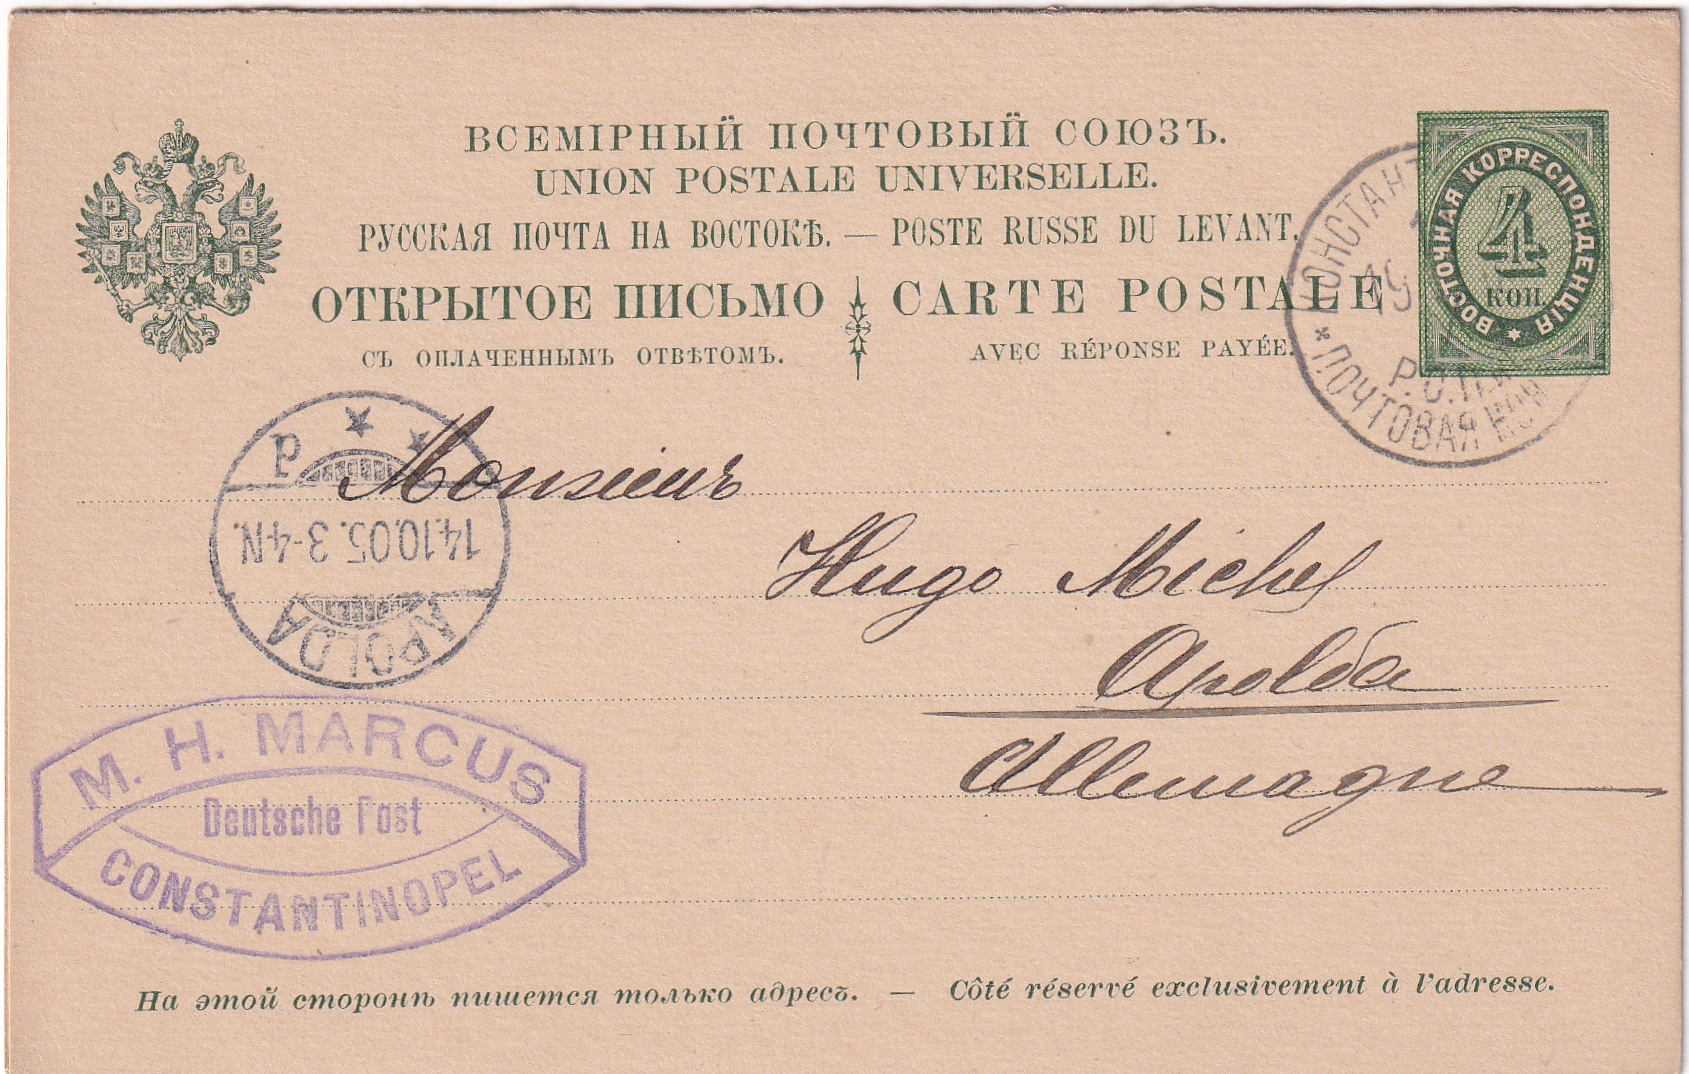 ВСЕМІРНЫЙ ПОЧТОВЫЙ СОЮЗЪ.
UNION POSTALE UNIVERSELLE.
РУССКАЯ ПОЧТА НА ВОСТОКѢ. — POSTE RUSSE DU LEVANT.
ОТКРЫТОЕ ПИСЬМО CARTE POSTALE
СЪ ОПЛАЧЕННЫМЪ ОТВѢТОМЪ. AVEC RÉPONSE PAYÉE.
ВОСТОЧНАЯ КОРРЕСПОНДЕНЦІЯ
4
КОП.
ПОЧТОВАЯ
P
14.10.05. 3-4 N.
APOLDA
Monsieur
Hugo Michel
Apolda
Allemagne
M. H. MARCUS
Deutsche Post
CONSTANTINOPEL
На этой сторонѣ пишется только адресъ. — Côté réservé exclusivement à l'adresse.